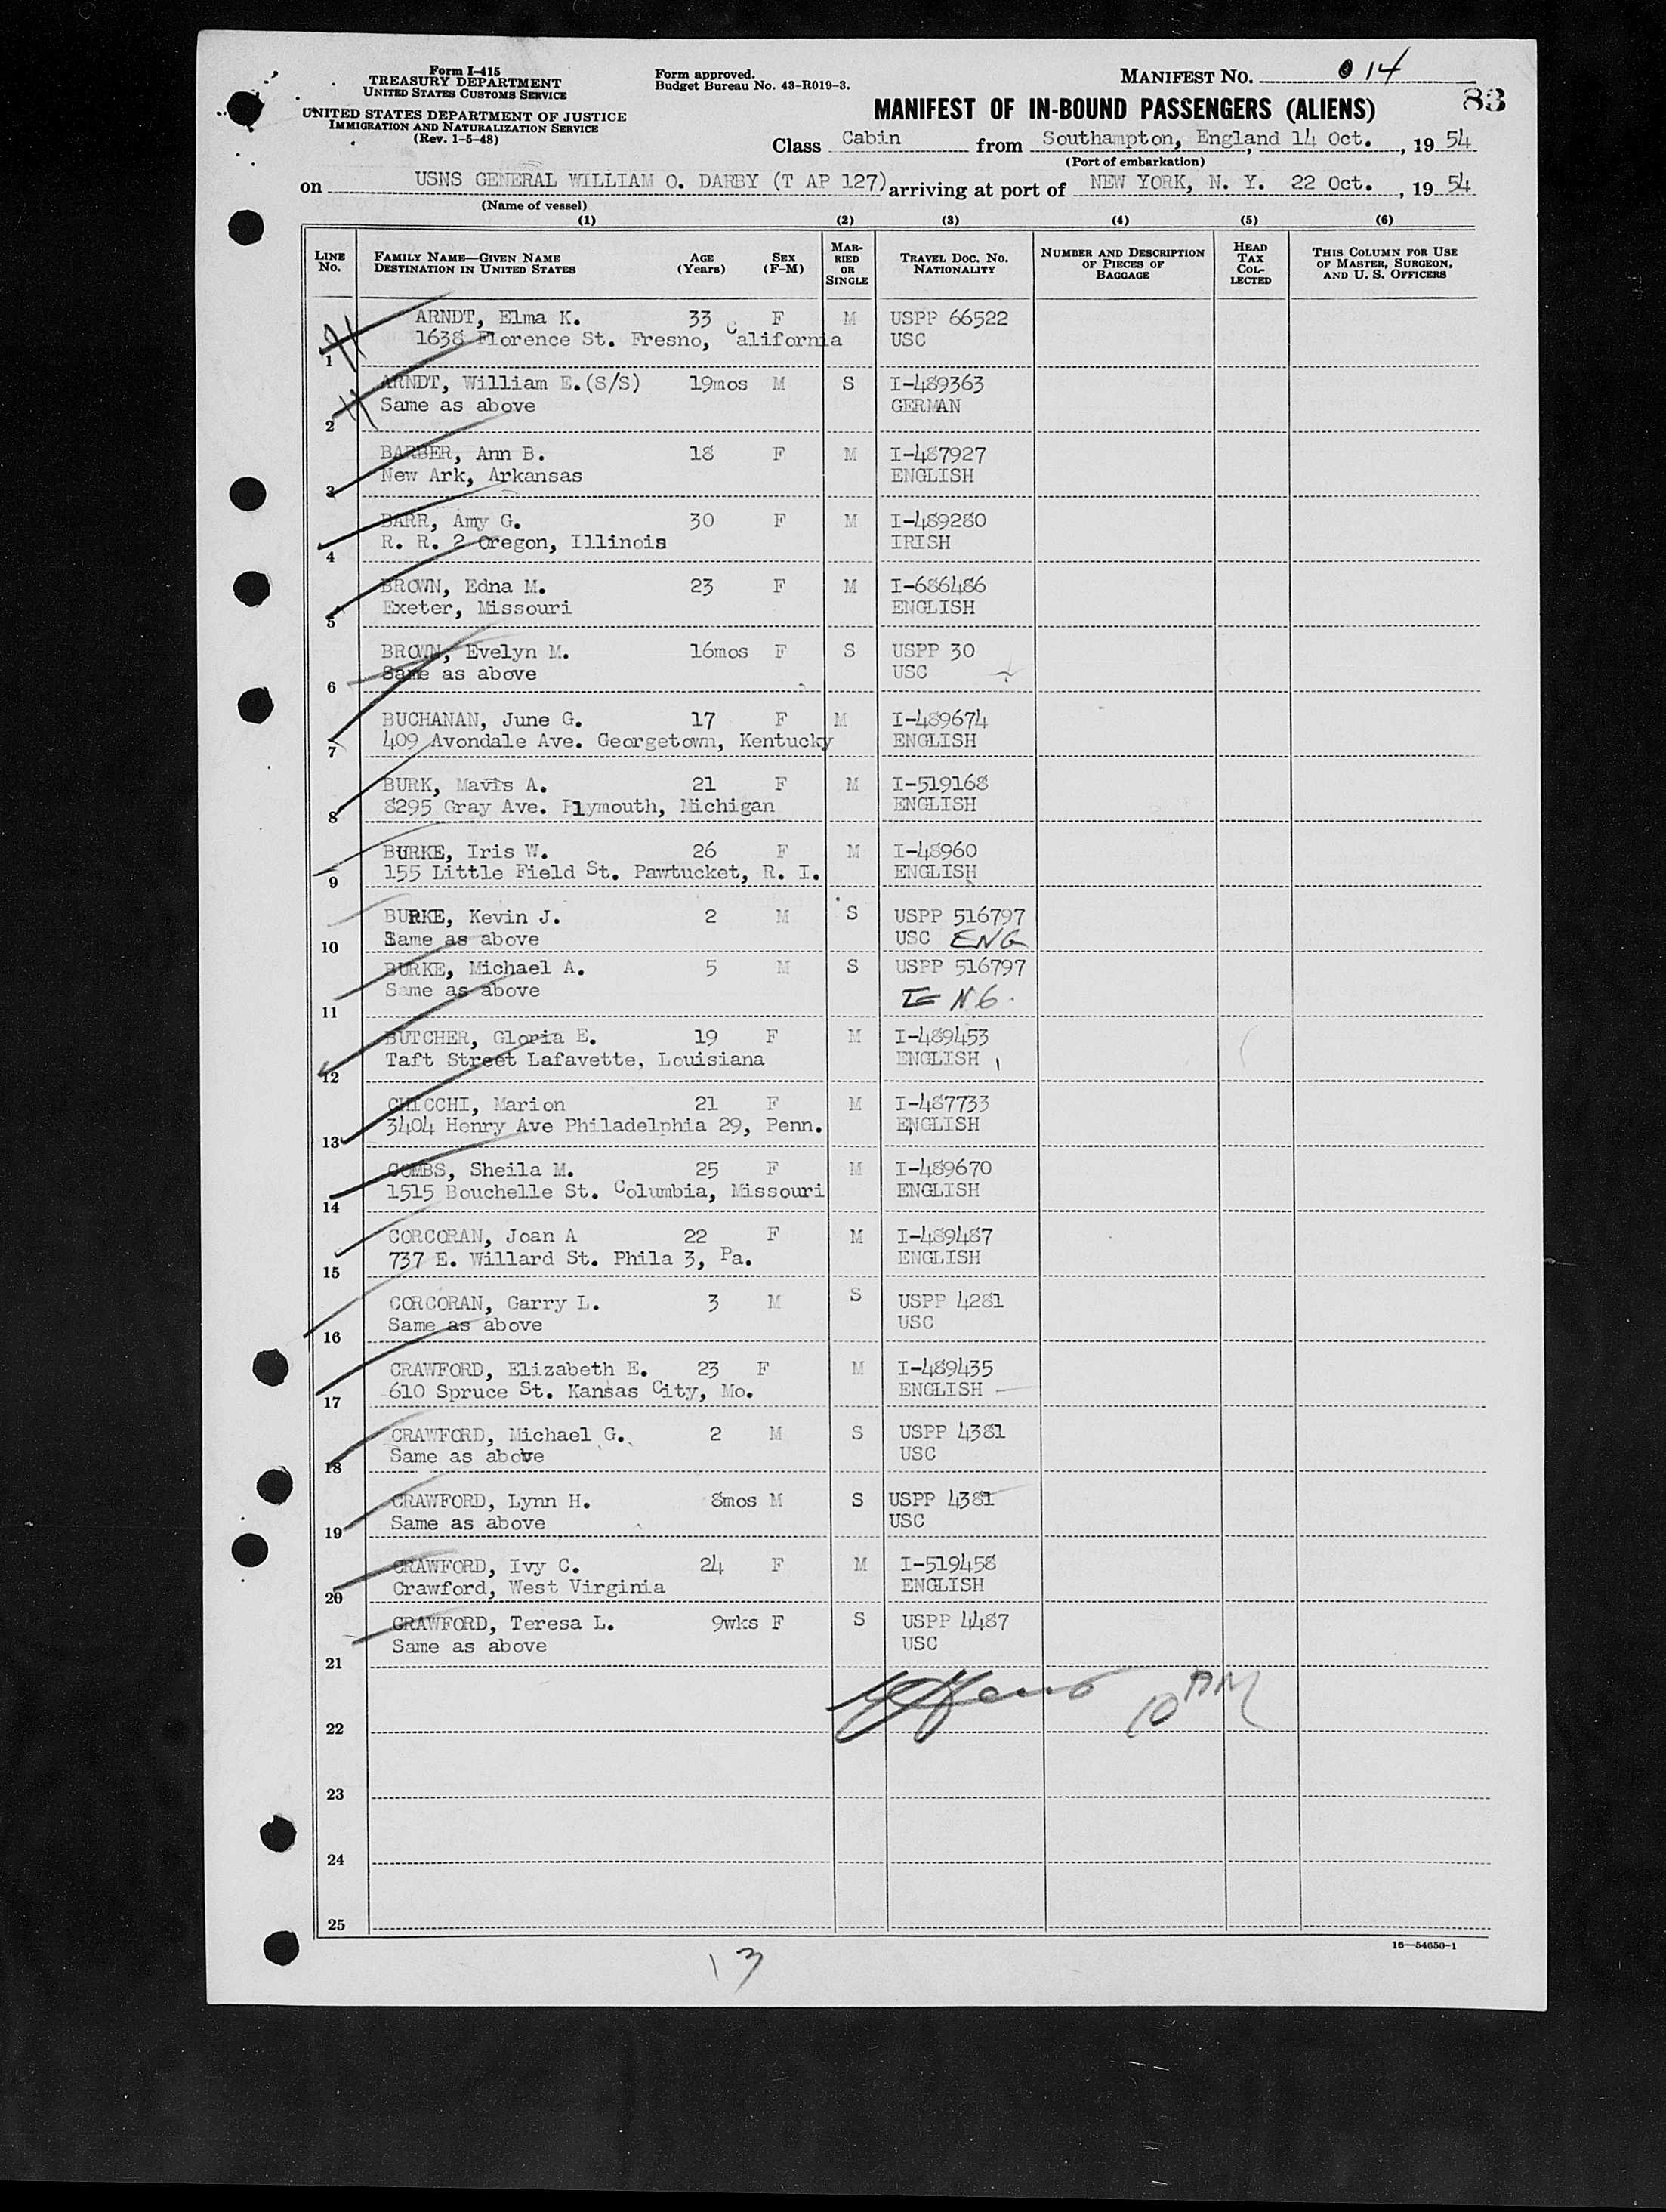 Form I-415
TREASURY DEPARTMENT
UNITED STATES CUSTOMS SERVICE
UNITED STATES DEPARTMENT OF JUSTICE
IMMIGRATION AND NATURALIZATION SERVICE
(Rev. 1-5-48)
Form approved.
Budget Bureau No. 43-R019-3.
MANIFEST NO. 014
83
MANIFEST OF IN-BOUND PASSENGERS (ALIENS)
Class Cabin from Southampton, England 14 Oct., 19 54
(Port of embarkation)
on USNS GENERAL WILLIAM O. DARBY (T AP 127) arriving at port of NEW YORK, N. Y. 22 Oct., 19 54
(Name of vessel)
(1) (2) (3) (4) (5) (6)
LINE No. FAMILY NAME—GIVEN NAME DESTINATION IN UNITED STATES AGE (Years) SEX (F-M) MARRIED OR SINGLE TRAVEL DOC. NO. NATIONALITY NUMBER AND DESCRIPTION OF PIECES OF BAGGAGE HEAD TAX COLLECTED THIS COLUMN FOR USE OF MASTER, SURGEON, AND U. S. OFFICERS
ARNDT, Elma K. 33 F M USPP 66522
1 1638 Florence St. Fresno, California USC
ARNDT, William E.(S/S) 19mos M S I-489363
2 Same as above GERMAN
BARBER, Ann B. 18 F M I-487927
3 New Ark, Arkansas ENGLISH
BARR, Amy G. 30 F M I-489280
4 R. R. 2 Oregon, Illinois IRISH
BROWN, Edna M. 23 F M I-686486
5 Exeter, Missouri ENGLISH
BROWN, Evelyn M. 16mos F S USPP 30
6 Same as above USC
BUCHANAN, June G. 17 F M I-489674
7 409 Avondale Ave. Georgetown, Kentucky ENGLISH
BURK, Mavis A. 21 F M I-519168
8 8295 Gray Ave. Plymouth, Michigan ENGLISH
BURKE, Iris W. 26 F M I-48960
9 155 Little Field St. Pawtucket, R. I. ENGLISH
BURKE, Kevin J. 2 M S USPP 516797
10 Same as above USC ENG
BURKE, Michael A. 5 M S USPP 516797
11 Same as above ENG.
BUTCHER, Gloria E. 19 F M I-489453
12 Taft Street Lafavette, Louisiana ENGLISH
CHICCHI, Marion 21 F M I-487733
13 3404 Henry Ave Philadelphia 29, Penn. ENGLISH
COMBS, Sheila M. 25 F M I-489670
14 1515 Bouchelle St. Columbia, Missouri ENGLISH
CORCORAN, Joan A 22 F M I-489487
15 737 E. Willard St. Phila 3, Pa. ENGLISH
CORCORAN, Garry L. 3 M S USPP 4281
16 Same as above USC
CRAWFORD, Elizabeth E. 23 F M I-489435
17 610 Spruce St. Kansas City, Mo. ENGLISH
CRAWFORD, Michael G. 2 M S USPP 4381
18 Same as above USC
CRAWFORD, Lynn H. 8mos M S USPP 4381
19 Same as above USC
CRAWFORD, Ivy C. 24 F M I-519458
20 Crawford, West Virginia ENGLISH
CRAWFORD, Teresa L. 9wks F S USPP 4487
21 Same as above USC
10 AM
22
23
24
25
16—54650-1
13